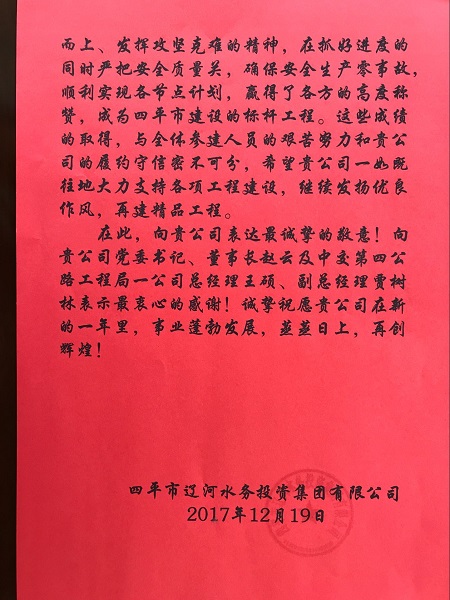 而上、发挥攻坚克难的精神，在抓好进度的
同时严把安全质量关，确保安全生产零事故，
顺利实现各节点计划，赢得了各方的高度称
赞，成为四平市建设的标杆工程。这些成绩
的取得，与全体参建人员的艰苦努力和贵公
司的履约守信密不可分，希望贵公司一如既
往地大力支持各项工程建设，继续发扬优良
作风，再建精品工程。
在此，向贵公司表达最诚挚的敬意！向
贵公司党委书记、董事长赵云及中交第四公
路工程局一公司总经理王硕、副总经理贾树
林表示最衷心的感谢！诚挚祝愿贵公司在新
的一年里，事业蓬勃发展，蒸蒸日上，再创
辉煌！
四平市辽河水务投资集团有限公司
2017年12月19日